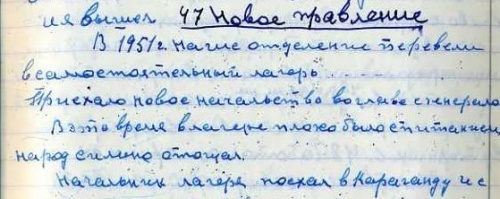 ия вышел 47 Новое правление
В 1951 г. наше отделение перевели
в самостоятельный лагерь.....
Приехало новое начальство во главе с генерало
В это время в лагере плохо было с питанием
народ сильно отощал.
Начальник лагеря поехал в Караганду и с